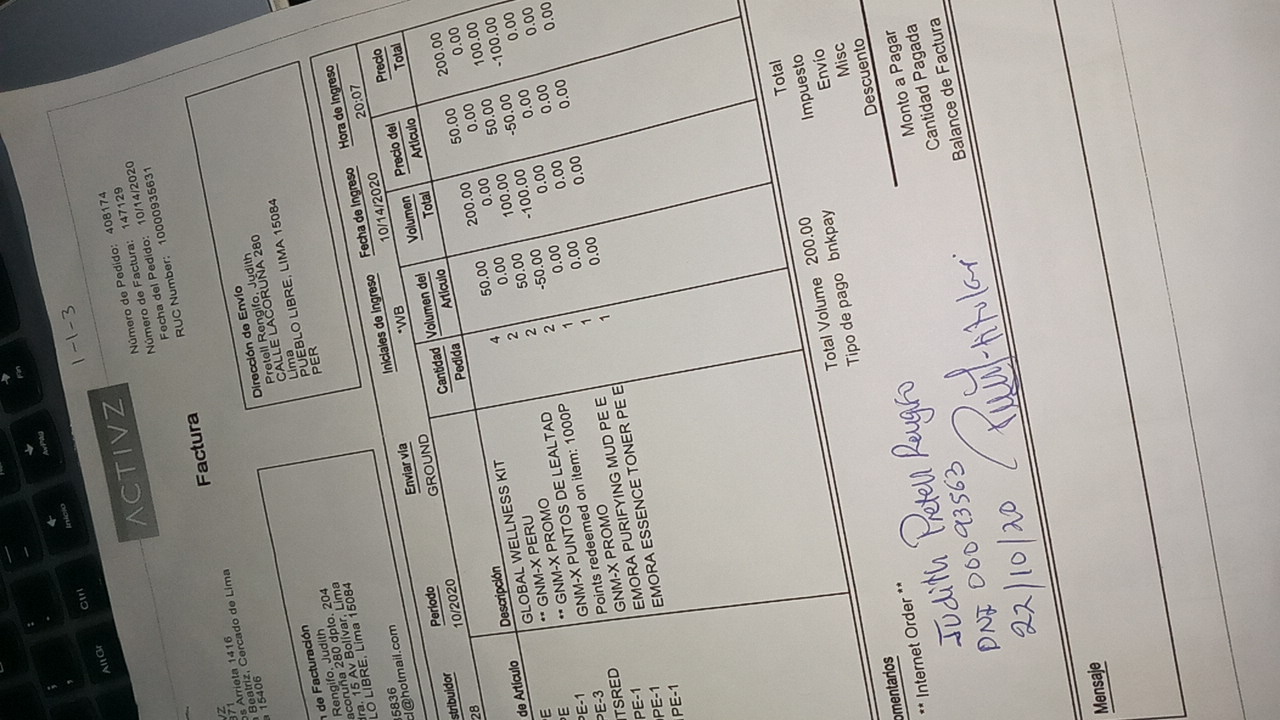 1-1-3
ACTIVZ
Factura
Número de Pedido: 408174
Número de Factura: 147129
Fecha del Pedido: 10/14/2020
RUC Number: 10000935631
Arrieta 1416
Beatriz, Cercado de Lima
15406
de Facturación
Rengifo, Judith
280 dpto. 204
15 Av Bolivar, Lima
LIBRE, Lima 15084
Dirección de Envío
Pretell Rengifo, Judith
CALLE LACORUÑA 280
Lima
PUEBLO LIBRE, LIMA 15084
PER
@hotmail.com
Periodo
10/2020
Enviar vía
GROUND
Iniciales de Ingreso
*WB
Fecha de Ingreso
10/14/2020
Hora de Ingreso
20:07
de Artículo Descripción Cantidad Pedida Volumen del Artículo Volumen Total Precio del Artículo Precio Total
GLOBAL WELLNESS KIT 4 50.00 200.00 50.00 200.00
** GNM-X PERU 2 0.00 0.00 0.00 0.00
GNM-X PROMO 2 50.00 100.00 50.00 100.00
** GNM-X PROMO 2 -50.00 -100.00 -50.00 -100.00
GNM-X PUNTOS DE LEALTAD 1 0.00 0.00 0.00 0.00
Points redeemed on item: 1000P
GNM-X PROMO
EMORA PURIFYING MUD PE E 1 0.00 0.00 0.00 0.00
EMORA ESSENCE TONER PE E 1 0.00 0.00 0.00 0.00
Total Volume 200.00
Tipo de pago bnkpay
Total
Impuesto
Envío
Misc
Descuento
Monto a Pagar
Cantidad Pagada
Balance de Factura
** Internet Order **
Judith Pretell Rengifo
DNI 00093563
22/10/20
Mensaje